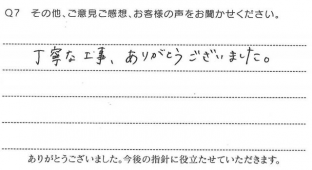 Q7 その他、ご意見ご感想、お客様の声をお聞かせください。
丁寧な工事、ありがとうございました。
ありがとうございました。今後の指針に役立たせていただきます。